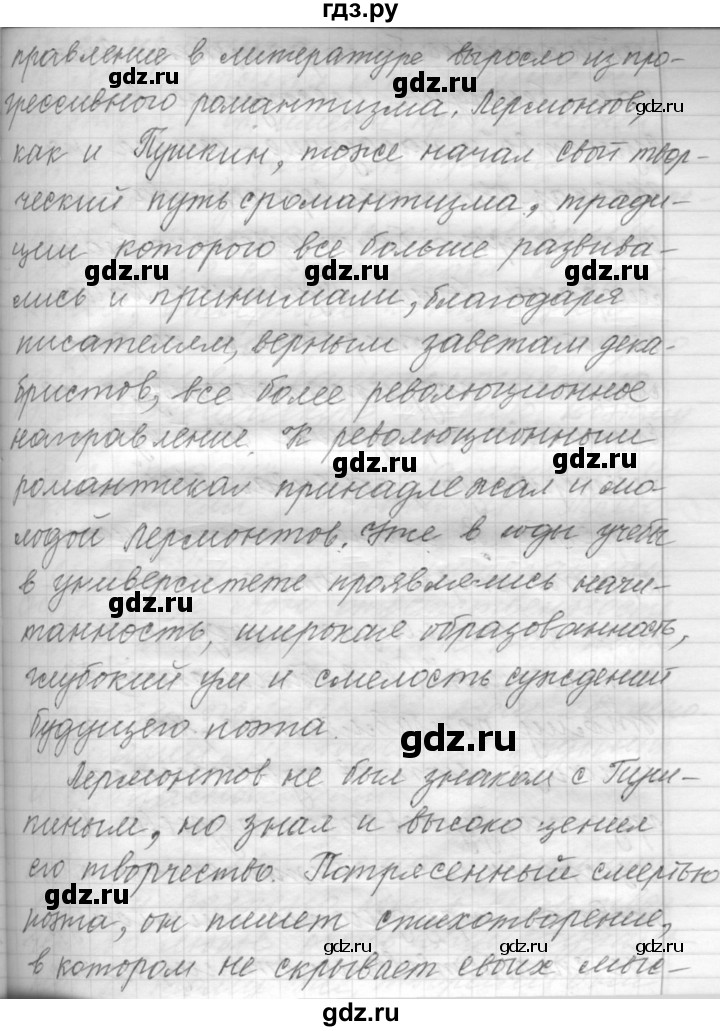 гдз.ру
правление в литературе выросло из про-
gdz.ru gdz.ru
грессивного романтизма. Лермонтов,
gdz.ru
как и Пушкин, тоже начал свой твор-
ческий путь с романтизма, тради-
ции которого все больше развива-
gdz.ru gdz.ru gdz.ru
лись и принимали, благодаря
писателям, верным заветам дека-
бристов, все более революционное
направление. К революционным
gdz.ru gdz.ru
романтикам принадлежал и мо-
лодой Лермонтов. Уже в годы учебы
в университете проявлялись начи-
gdz.ru
танность, широкая образованность,
глубокий ум и смелость суждений
будущего поэта.
gdz.ru
Лермонтов не был знаком с Пуш-
киным, но знал и высоко ценил
его творчество. Потрясенный смертью
gdz.ru gdz.ru
поэта, он пишет стихотворение,
gdz.ru gdz.ru
в котором не скрывает своих мыс-
gdz.ru